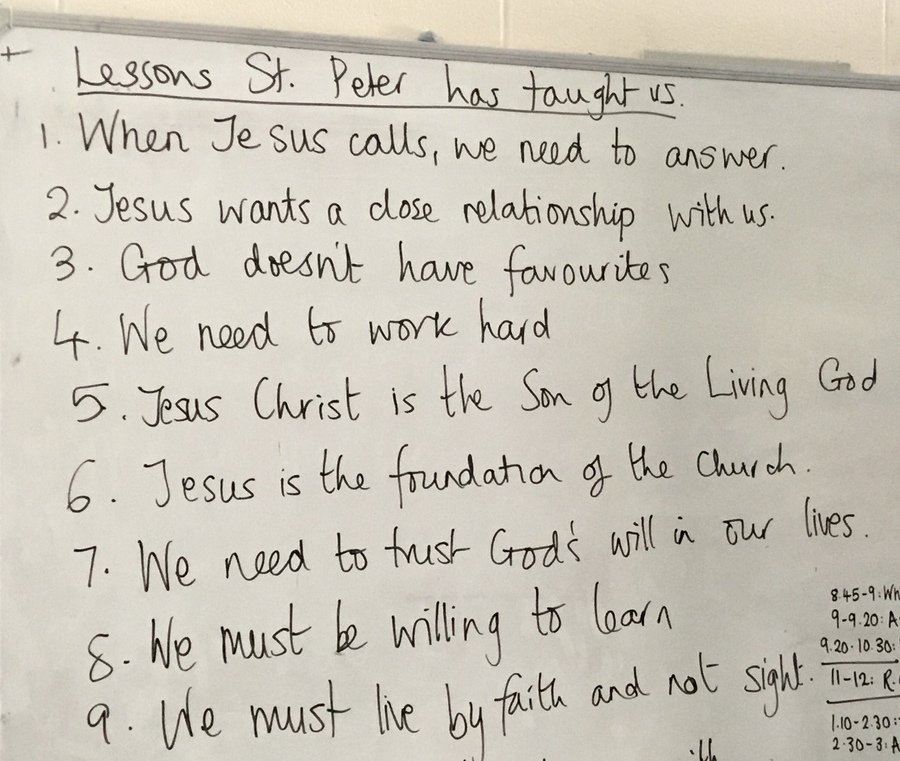 Lessons St. Peter has taught us.
1. When Jesus calls, we need to answer.
2. Jesus wants a close relationship with us.
3. God doesn't have favourites
4. We need to work hard
5. Jesus Christ is the Son of the Living God
6. Jesus is the foundation of the Church.
7. We need to trust God's will in our lives.
8. We must be willing to learn
9. We must live by faith and not sight.
8.45-9:
9-9.20:
9.20-10.30:
11-12:
1.10-2.30:
2.30-3: